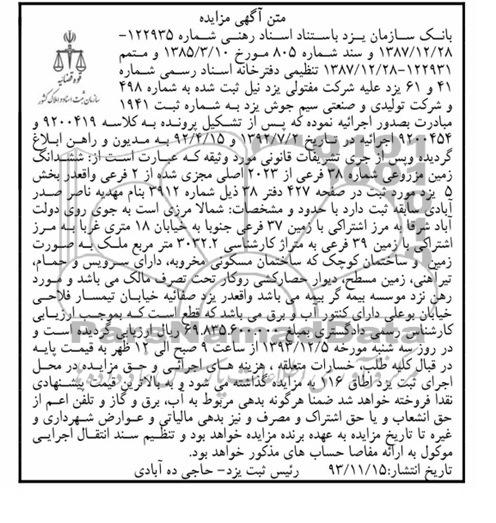 متن آگهی مزایده
بانک سازمان یزد باستناد اسناد رهنی شماره ۱۲۲۹۳۵-
۱۳۸۷/۱۲/۲۸ و سند شماره ۸۰۵ مورخ ۱۳۸۵/۳/۱۰ و متمم
۱۲۲۹۳۱-۱۳۸۷/۱۲/۲۸ تنظیمی دفترخانه اسناد رسمی شماره
۴۱ و ۶۱ یزد علیه شرکت مفتولی یزد نیل ثبت شده به شماره ۴۹۸
و شرکت تولیدی و صنعتی سیم جوش یزد به شماره ثبت ۱۹۴۱
مبادرت بصدور اجرائیه نموده که پس از تشکیل پرونده به کلاسه ۹۲۰۰۴۱۹ و
۹۲۰۰۴۵۴ اجرائیه در ۱۳۹۲/۷/۱ و ۹۲/۴/۱۵ به مدیون و راهن ابلاغ
گردیده وپس از جری تشریفات قانونی مورد وثیقه که عبارت است از: ششدانگ
زمین مزروعی شماره ۳۸ فرعی از ۲۰۲۳ اصلی مجزی شده از ۲ فرعی واقعدر بخش
۵ یزد مورد ثبت در صفحه ۴۲۷ دفتر ۲۸ ذیل شماره ۳۹۱۲ بنام مهدیه ناصر صدر
آبادی سابقه ثبت دارد با حدود و مشخصات: شمالا مرزی است به جوی روی دولت
آباد شرقا به مرز اشتراکی با زمین ۳۷ فرعی جنوبا به خیابان ۱۸ متری غربا به مرز
اشتراکی با زمین ۳۹ فرعی به متراژ کارشناسی ۳۰۳۲.۲ متر مربع ملک به صورت
زمین و ساختمان کوچک که ساختمان مسکونی مخروبه، دارای سرویس و حمام،
تیرآهنی، زمین مسطح، دیوار حصارکشی روکار تحت تصرف مالک می باشد و مورد
رهن نزد موسسه بیمه گر بیمه می باشد واقعدر یزد صفائیه خیابان تیمسار فلاحی
خیابان بوعلی دارای کنتور آب و برق می باشد که قطع است که بموجب ارزیابی
کارشناس رسمی دادگستری بمبلغ ریال ارزیابی گردیده است و
در روز سه شنبه مورخه ۱۳۹۳/۱۲/۵ از ساعت ۹ صبح الی ۱۲ ظهر به قیمت پایه
در قبال کلیه طلب، خسارات متعلقه، هزینه های اجرائی و حق مزایده در محل
اجرای ثبت یزد اطاق ۱۱۶ به مزایده گذاشته می شود و به بالاترین قیمت پیشنهادی
نقدا فروخته خواهد شد ضمنا هرگونه بدهی مربوط به آب، برق و گاز و تلفن اعم از
حق انشعاب و یا حق اشتراک و مصرف و نیز بدهی مالیاتی و عوارض شهرداری و
غیره تا تاریخ مزایده به عهده برنده مزایده خواهد بود و تنظیم سند انتقال اجرایی
موکول به ارائه مفاصا حساب های مذکور خواهد بود.
تاریخ انتشار: ۹۳/۱۱/۱۵ رئیس ثبت یزد- حاجی ده آبادی
قوه قضائیه
سازمان ثبت اسناد و املاک کشور
ParsNamadData